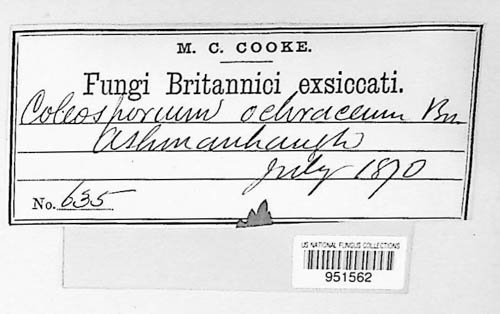 M. C. COOKE.
Fungi Britannici exsiccati.
Coleosporium ochraceum Bn.
Ashmanhaugh
July 1870
No. 635
US NATIONAL FUNGUS COLLECTIONS
951562